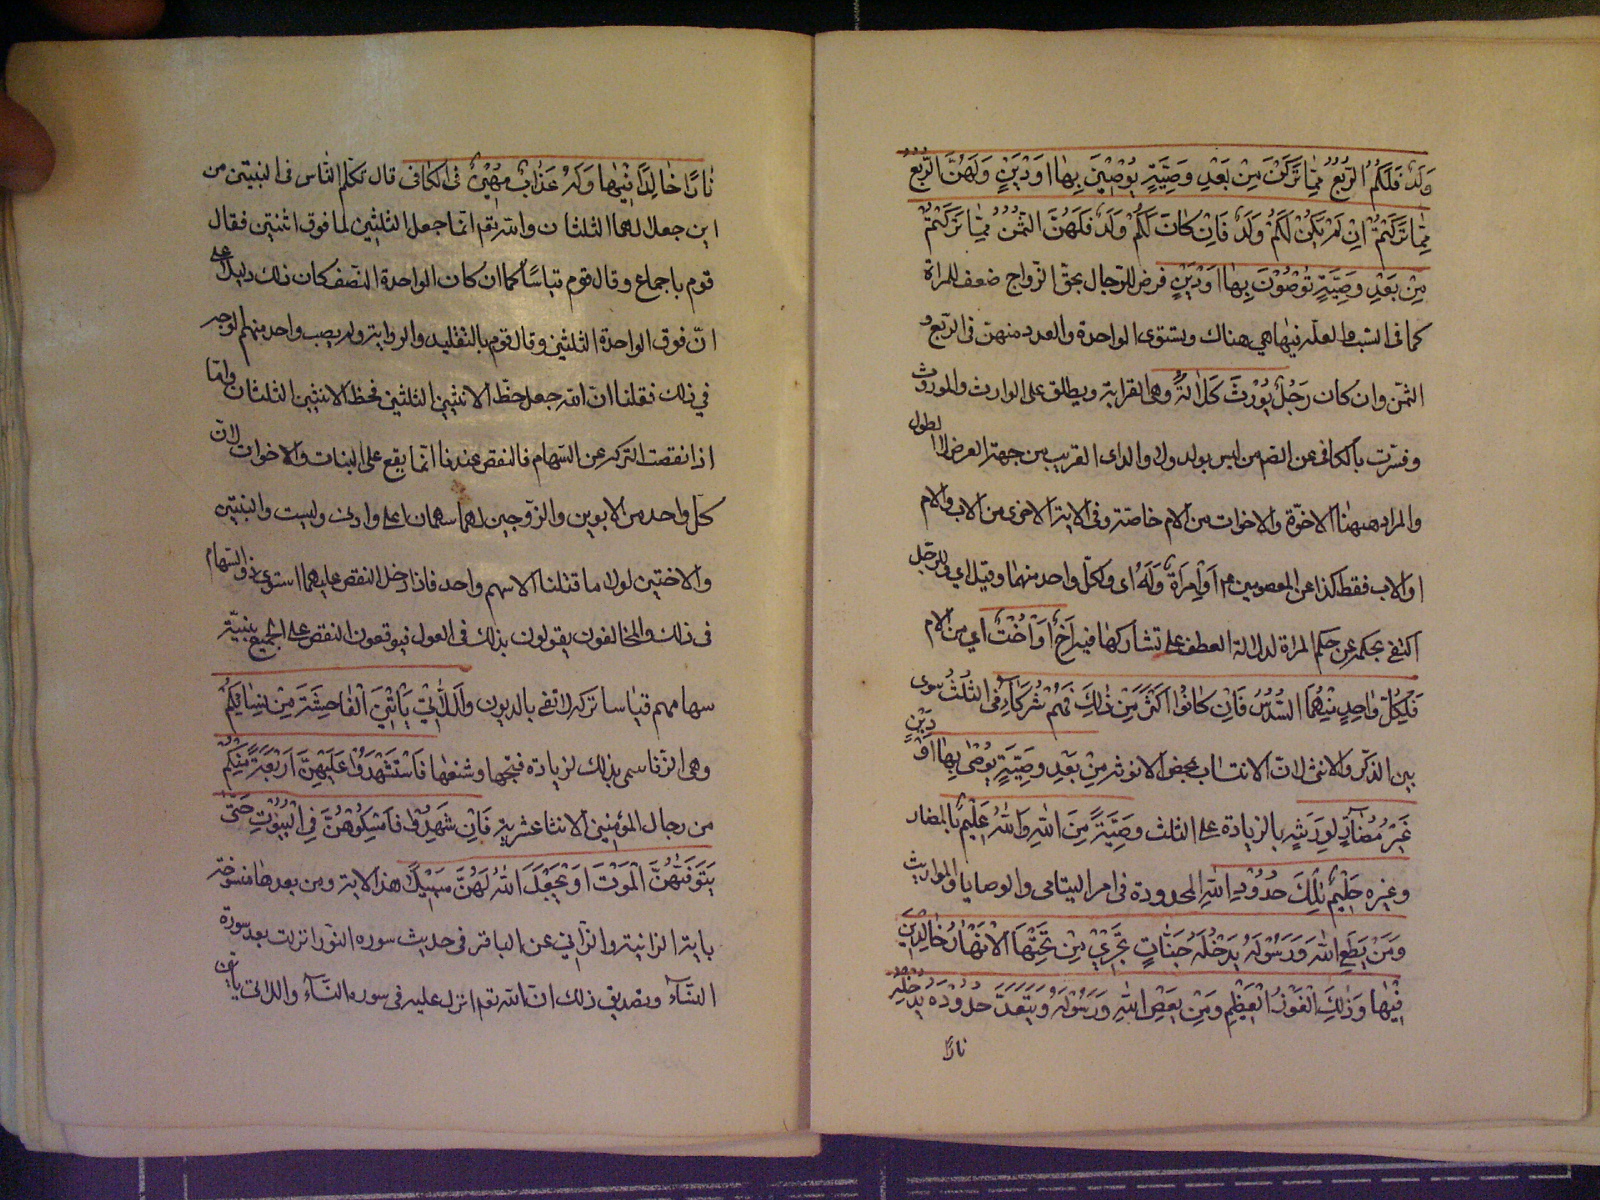 وَلَدٌ فَلَكُمُ الرُّبُعُ مِمَّا تَرَكْنَ مِنْ بَعْدِ وَصِيَّةٍ يُوْصِيْنَ بِهَا اَوْ دَيْنٍ وَلَهُنَّ الرُّبُعُ
مِمَّا تَرَكْتُمْ اِنْ لَمْ يَكُنْ لَكُمْ وَلَدٌ فَاِنْ كَانَ لَكُمْ وَلَدٌ فَلَهُنَّ الثُّمُنُ مِمَّا تَرَكْتُمْ
مِنْ بَعْدِ وَصِيَّةٍ تُوْصُوْنَ بِهَا اَوْ دَيْنٍ فرض للرجال بحق الزواج ضعف للمراة
كما فى النسب والعلة فيها هي هناك ويستوى الواحدة والعدد منهن فى الربع و
الثمن وان كان رَجُلٌ يُوْرَثُ كَلَالَةً وهى القرابة ويطلق على الوارث والموروث
وفسرت بالكافى عن الصم من ليس بولد ولا والد اى القريب من جهة العرض لا الطول
والمراد ههنا الاخوّة والاخوات من الام خاصة وفى الاية الاخرى من الاب والام
او الاب فقط كذا عن المعصومين ع م اَوِ امْرَاَةٌ وَلَهُ اى ولكل واحد منهما وقيل اي وللرجل
اكتفى بحكمه عن حكم المراة لدلالة العطف على تشاركهما فيه اَخٌ اَوْ اُخْتٌ اي من الام
فَلِكُلِّ وَاحِدٍ مِنْهُمَا السُّدُسُ فَاِنْ كَانُوا اَكْثَرَ مِنْ ذٰلِكَ فَهُمْ شُرَكَآءُ فِى الثُّلُثِ سوى
بين الذكر والانثى لان الانتساب بمحض الانوثة مِنْ بَعْدِ وَصِيَّةٍ يُوْصٰى بِهَا اَوْ دَيْنٍ
غَيْرَ مُضَآرٍّ لورثته بالزيادة على الثلث وَصِيَّةً مِنَ اللهِ وَاللهُ عَلِيْمٌ بالمضار
وغيره حَلِيْمٌ تِلْكَ حُدُوْدُ اللهِ المحدودة فى امر اليتامى والوصايا والمواريث
وَمَنْ يُطِعِ اللهَ وَرَسُوْلَهُ يُدْخِلْهُ جَنَّاتٍ تَجْرِيْ مِنْ تَحْتِهَا الْاَنْهَارُ خَالِدِيْنَ
فِيْهَا وَذٰلِكَ الْفَوْزُ الْعَظِيْمِ وَمَنْ يَعْصِ اللهَ وَرَسُوْلَهُ وَيَتَعَدَّ حُدُوْدَهُ يُدْخِلْهُ
نارًا
نَارًا خَالِدًا فِيْهَا وَلَهُ عَذَابٌ مُهِيْنٌ فى الكافى قال تكلم الناس فى البنتين من
اين جعل لهما الثلثان والله تعم انما جعل الثلثين لما فوق اثنتين فقال
قوم باجماع وقال قوم قياسًا كما ان كان الواحدة النصف كان ذلك دليلا على
انّ فوق الواحدة الثلثين وقال قوم بالتقليد والرواية ولم يصب واحد منهم الوجه
في ذلك فقلنا انّ الله جعل حظّ الانثيين الثلثين فحظ الانثيين الثلثان وامّا
اذا نقصت التركة عن السهام فالنقص عندنا انما يقع على البنات والاخوات لانّ
كلّ واحد من الابوين والزوجين لهما سهمان اعلى وادنى وليست والبنتين
والاختين لولا ما قلنا الا سهم واحد فاذا دخل النقص عليهما استوى ذو السهام
فى ذلك والمخالفون يقولون بذلك فى العول فيوقعون النقص على الجميع بنسبة
سهامهم قياسا تركة لا تفى بالديون وَاللَّاتِيْ يَأْتِيْنَ الْفَاحِشَةَ مِنْ نِسَائِكُمْ
وهى الزنا سمى بذلك لزيادة قبحها وشنعها فَاسْتَشْهِدُوْا عَلَيْهِنَّ اَرْبَعَةً مِنْكُمْ
من رجال المؤمنين الاثنا عشرية فَاِنْ شَهِدُوْا فَاَمْسِكُوْهُنَّ فِى الْبُيُوْتِ حَتّٰى
يَتَوَفّٰهُنَّ الْمَوْتُ اَوْ يَجْعَلَ اللهُ لَهُنَّ سَبِيْلًا هذا الاية ومن بعدها منسوخة
باية الزانية والزاني عن الباقر فى حديث سوره النور انزلت بعد سورة
النسآء وتصديق ذلك انّ الله تعم انزل عليه فى سوره النسآء واللاتى يأتين